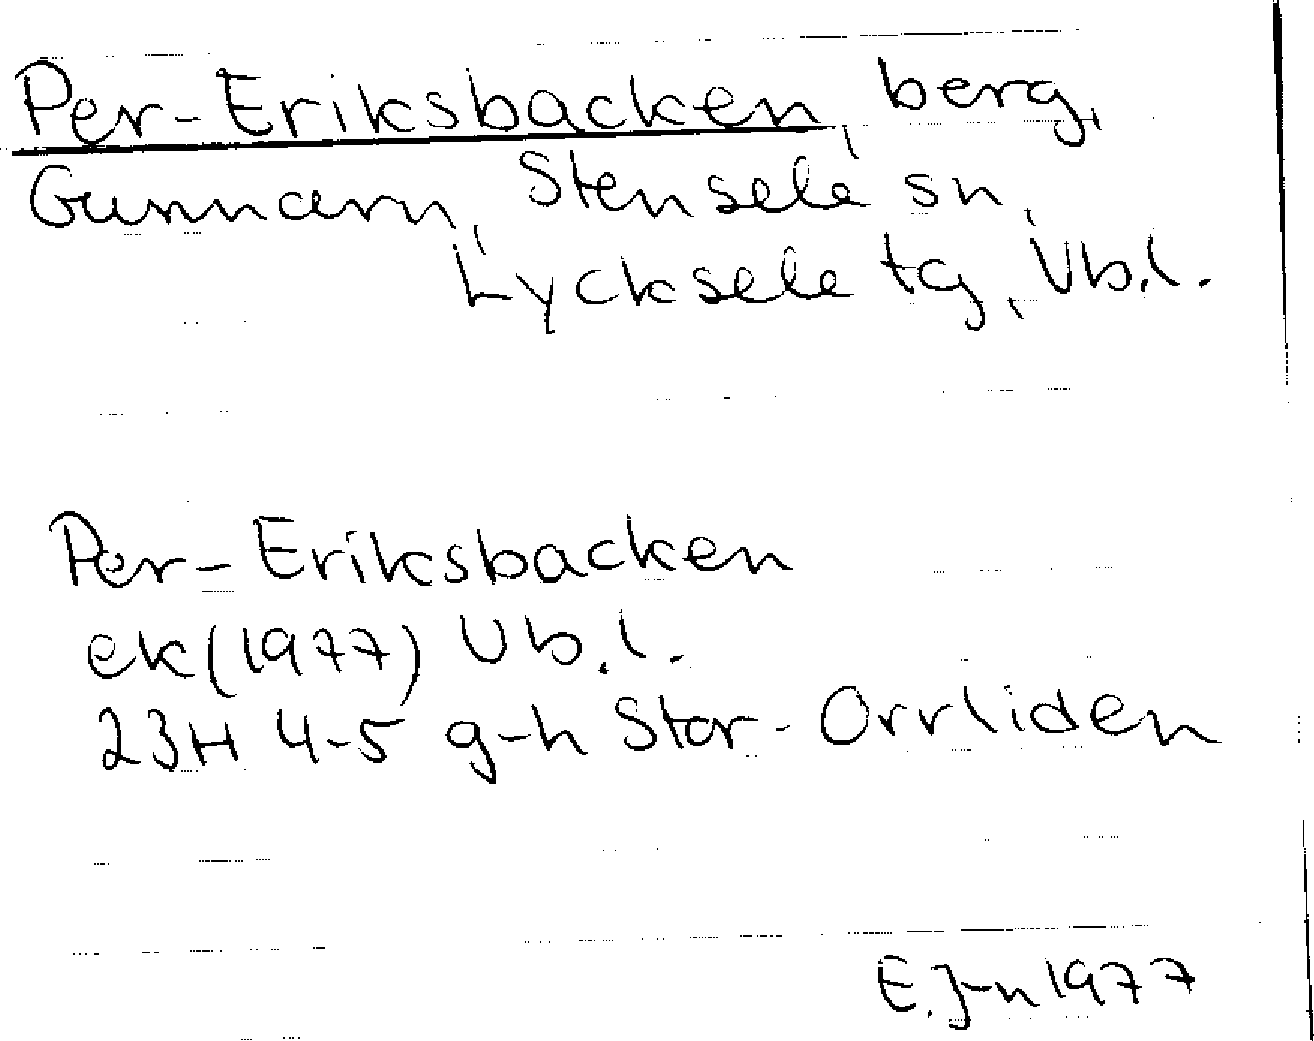 Per-Eriksbacken, berg,
Gunnarn, Stensele sn,
Lycksele tg, Vb.l.
Per-Eriksbacken
ek(1977) Vb.l.
23H 4-5 g-h Stor-Orrliden
E.J-n 1977